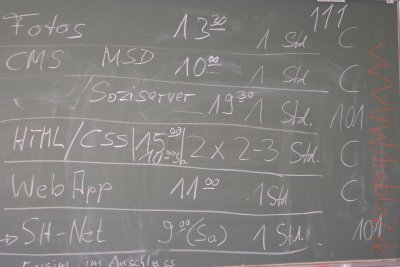 111
Fotos 13³⁰ 1 Std C
CMS MSD 10⁰⁰ 1 Std. C
/Soziserver 19³⁰ 1 Std. 101
HTML/CSS |15⁰⁰| 2 x 2-3 Std. C
WebApp 11⁰⁰ 1 Std. C
→ SH-Net 9⁰⁰ (So) 1 Std. 101
im Anschluss